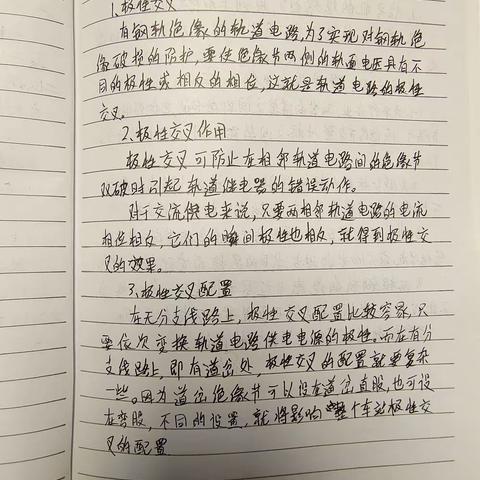 1.极性交叉
有钢轨绝缘的轨道电路,为了实现对钢轨绝
缘破损的防护,要使绝缘节两侧的轨面电压具有不
同的极性或相反的相位,这就是轨道电路的极性
交叉.
2.极性交叉作用
极性交叉可防止在相邻轨道电路间的绝缘节
双破时引起轨道继电器的错误动作。
对于交流供电来说,只要两相邻轨道电路的电流
相位相反,它们的瞬间极性也相反,就得到极性交
叉的效果。
3.极性交叉配置
在无分支线路上,极性交叉配置比较容易,只
要依次变换轨道电路供电电源的极性。而在有分
支线路上,即有道岔处,极性交叉的配置就要复杂
一些。因为道岔绝缘节可以设在道岔直股,也可设
在弯股,不同的设置,就将影响整个车站极性交
叉的配置